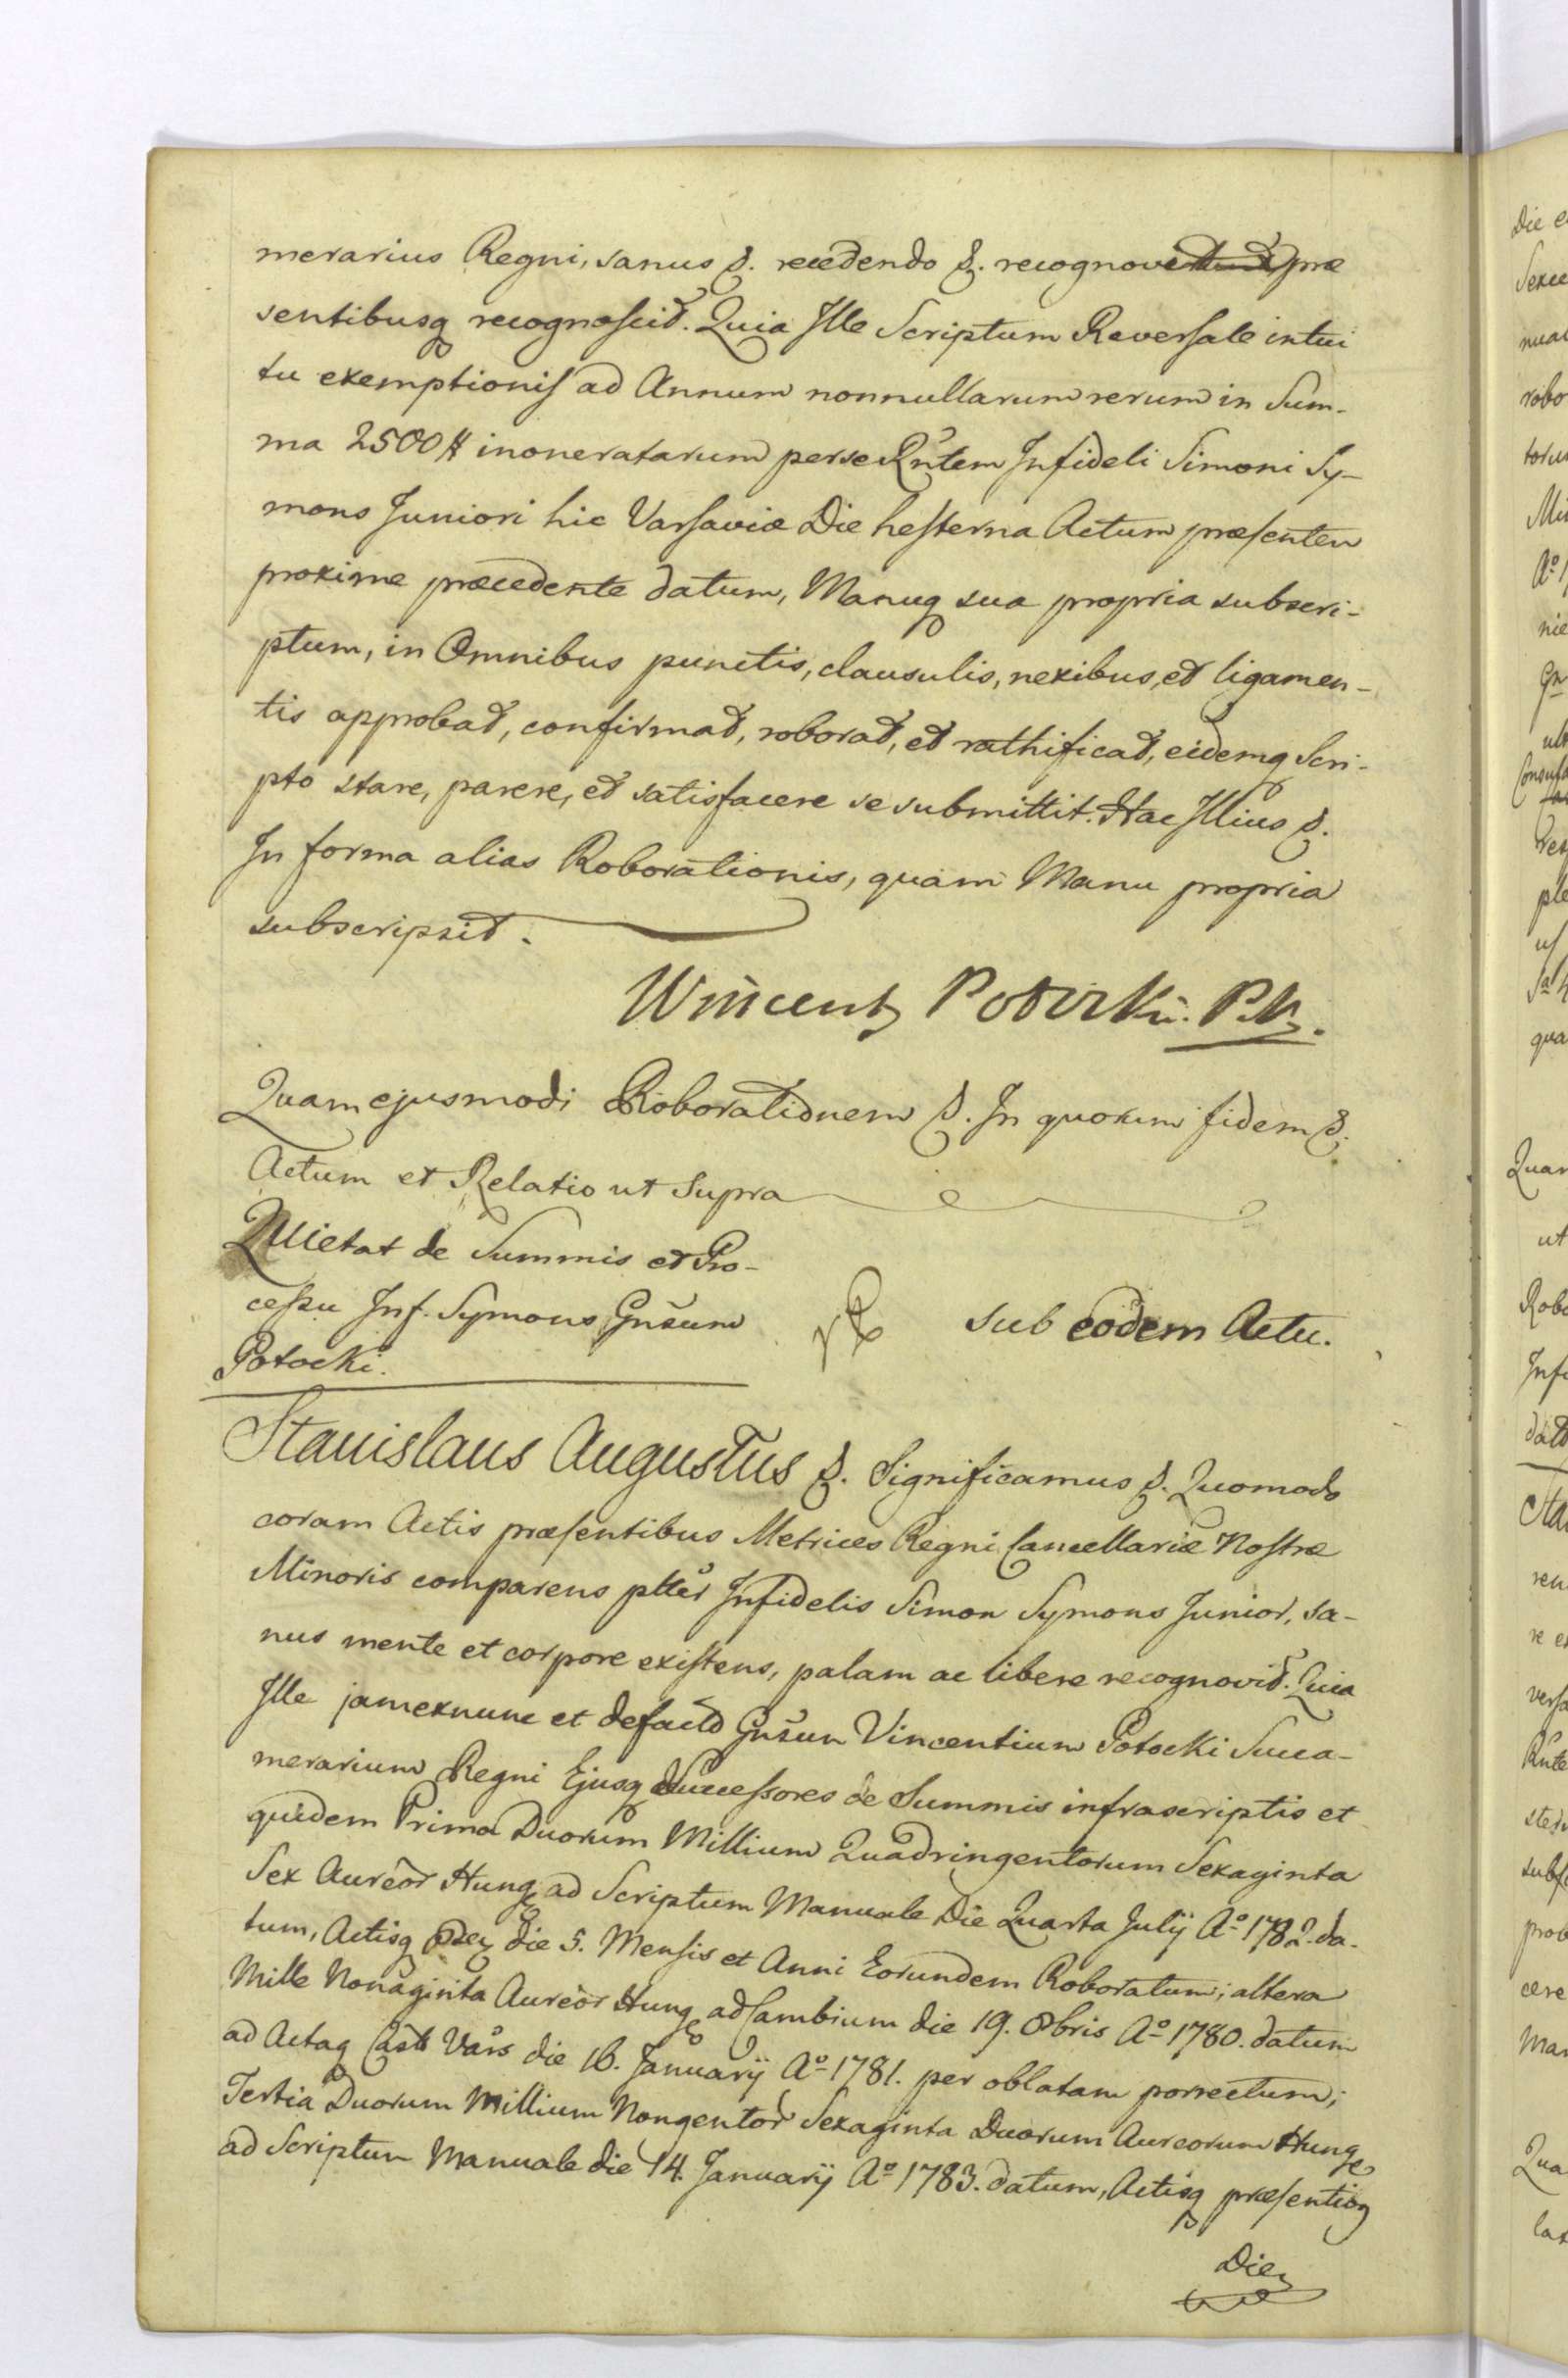 merarius Regni, sanus &. recedendo &. recognovit præ
sentibusq recognoscit. Quia Ille Scriptum Reversale intui
tu exemptionis ad Annum nonnullarum rerum in Sum-
ma 2500 # inoneratarum per se Rntem Infideli Simoni Sy-
mons Juniori hic Varsaviæ Die hesterna Actum præsentem
proxime præcedente datum, Manuq sua propria subscri-
ptum, in Omnibus punctis, clausulis, nexibus, et ligamen-
tis approbat, confirmat, roborat, et rathificat, eidemq Scri-
pto stare, parere, et satisfacere se submittit. Hac Illius &.
In forma alias Roborationis, quam Manu propria
subscripsit.
Wincenty Potocki P.K.
Quam ejusmodi Roborationem &. In quorum fidem &.
Actum et Relatio ut Supra
Quietat de Summis et Pro-
cessu Inf. Symons Gnsum
Potocki.
Sub eodem Actu.
Stanislaus Augustus &. Significamus &. Quomodo
coram Actis præsentibus Metrices Regni Cancellariæ Nostræ
Minoris comparens ptter Infidelis Simon Symons Junior, sa-
nus mente et corpore existens, palam ac libere recognovit. Quia
Ille jam exnunc et defacto Gnsum Vincentium Potocki Succa-
merarium Regni Ejusq Successores de Summis infrascriptis et
quidem Prima Duorum Millium Quadringentorum Sexaginta
Sex Aureor Hung ad Scriptum Manuale Die Quarta Julij Aº 1782. da-
tum, Actisq die 5. Mensis et Anni Eorundem Roboratum; altera
Mille Nonaginta Aureor Hung ad Cambium die 19. 8bris Aº 1780. datum
ad Actaq Castr Vars die 16. Januarij Aº 1781. per oblatam porrectum;
Tertia Duorum Millium Nongentor Sexaginta Duorum Aureorum Hung
ad Scriptum Manuale die 14. Januarij Aº 1783. datum, Actisq præsentibq
Die